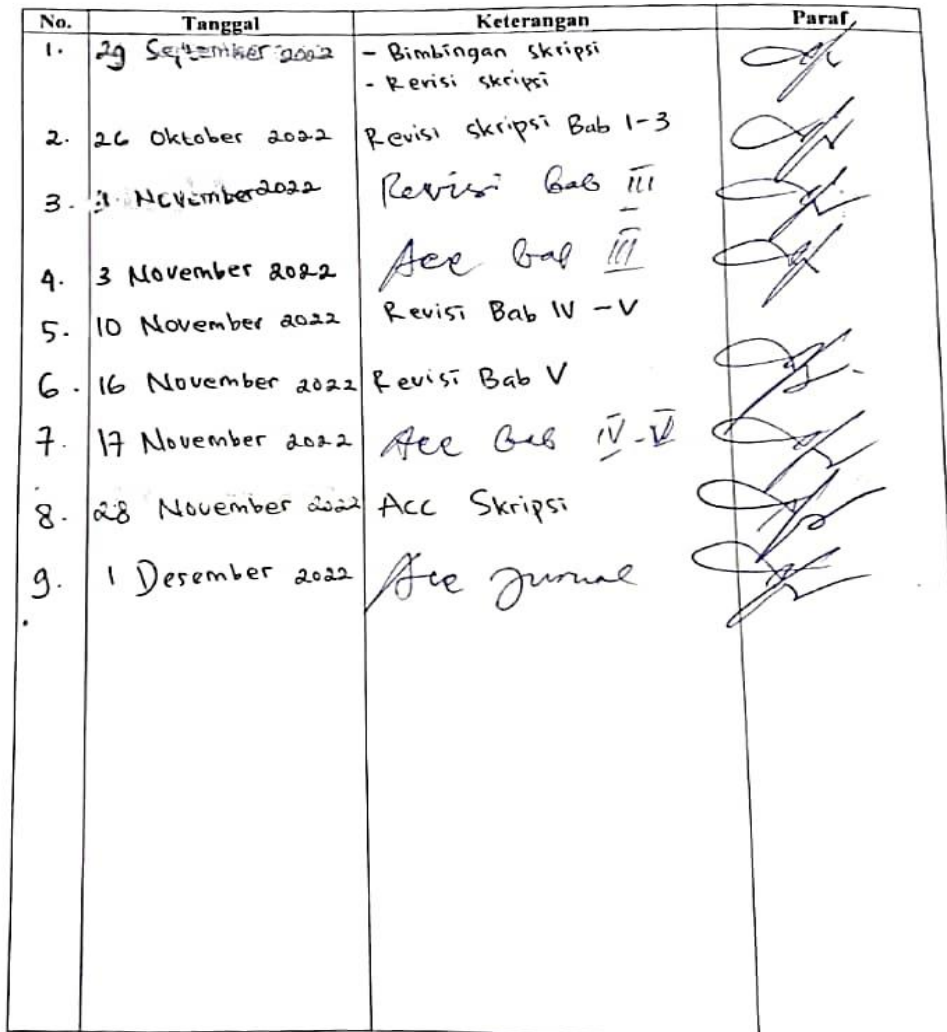 No. Tanggal Keterangan Paraf
1. 29 September 2022 - Bimbingan skripsi
- Revisi skripsi
2. 26 Oktober 2022 Revisi skripsi Bab 1-3
3. November 2022 Revisi Bab III
4. 3 November 2022 Acc Bab III
5. 10 November 2022 Revisi Bab IV - V
6. 16 November 2022 Revisi Bab V
7. 17 November 2022 Acc Bab IV - V
8. 28 November 2022 Acc Skripsi
9. 1 Desember 2022 Acc Jurnal